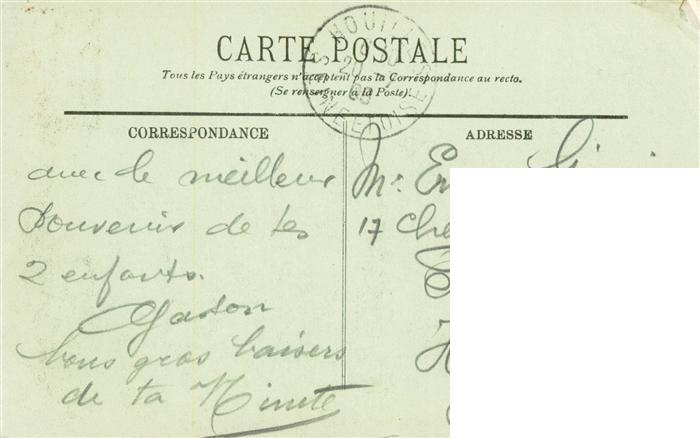 CARTE POSTALE
Tous les Pays étrangers n'acceptent pas la Correspondance au recto.
(Se renseigner à la Poste).
CORRESPONDANCE
avec le meilleur
souvenir de tes
2 enfants.
Gaston
bons gros baisers
de ta Minette
ADRESSE
Mr
17
HOUILLES
SEINE ET OISE